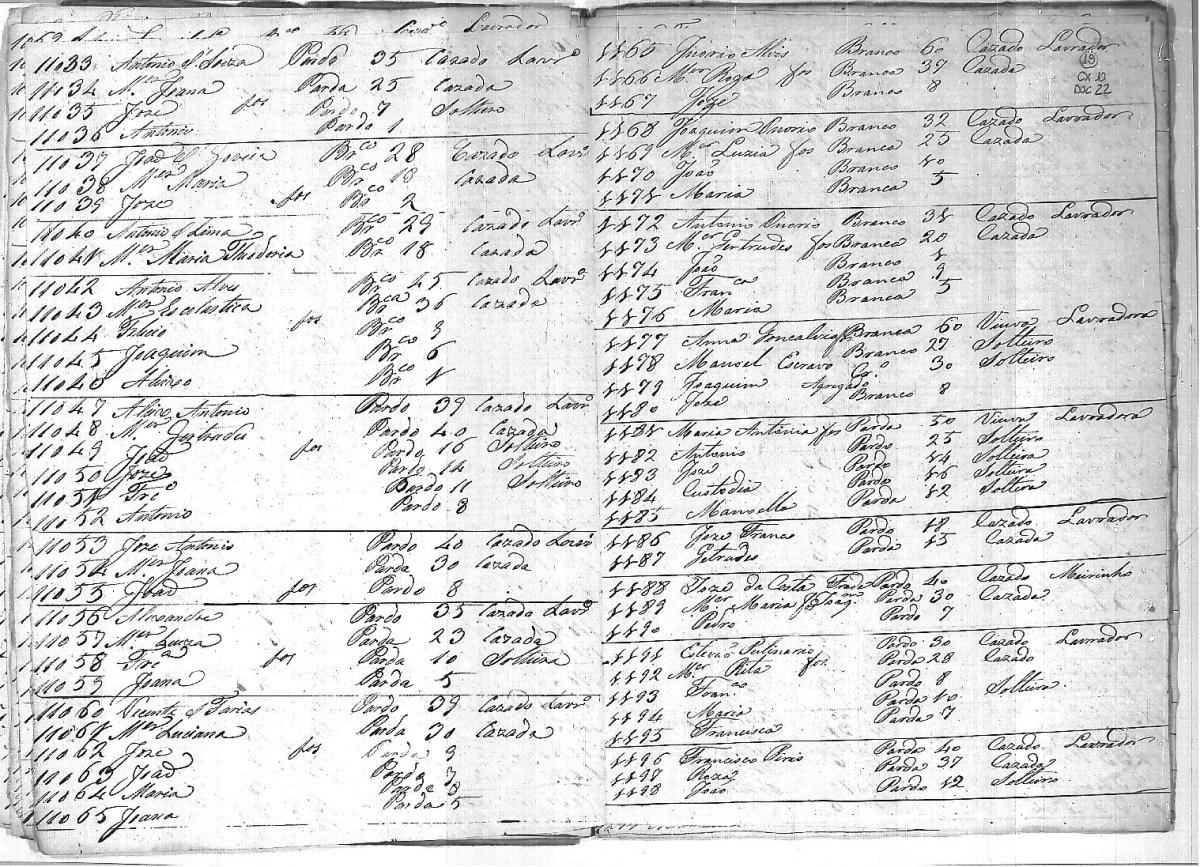 11033 Antonio d'Souza Pardo 35 Cazado Lavr.
11034 M.er Joana Parda 25 Cazada
11035 Joze fos Pardo 7 Solteiro
11036 Antonio Pardo 1
11037 Joaõ Br.co 28 Cazado Lavr.
11038 M.er Maria Br.co 18 Cazada
11039 Joze fos Br.co 2
11040 Antonio d'Lima Br.co 29 Cazado Lavr.
11041 M.er Maria Thederia Br.co 18 Cazada
11042 Antonio Alvs Br.co 45 Cazado Lavr.o
11043 M.er Escolastica Br.ca 36 Cazada
11044 fos Br.co 9
11045 Joaquim Br.co 6
11046 Br.co 1
11047 Antonio Pardo 39 Cazado Lavr.o
11048 M.er Gertrudes Pardo 40 Cazada
11049 Joaõ fos Pardo 16 Solteiro
11050 Joze Pardo 14 Solteiro
11051 Fr.co Pardo 11 Solteiro
11052 Antonio Pardo 8
11053 Joze Antonio Pardo 40 Cazado Lavr
11054 M.er Joana Parda 30 Cazada
11055 Joaõ fos Pardo 8
11056 Alexandre Pardo 35 Cazado Lavr.
11057 M.er Luiza Parda 23 Cazada
11058 Fr.ca fos Parda 10 Solteira
11059 Joana Parda 5
11060 Vicente d'Farias Pardo 39 Cazado Lavr.
11061 M.er Luciana Parda 30 Cazada
11062 Joze fos Parda 9
11063 Joaõ Pardo
11064 Maria Parda 8
11065 Joana Parda 5
1165 Onorio Alvs Branco 60 Cazado Lavrador
1166 M.er Roza fos Branca 37 Cazada
1167 Joze Branco 8
19
CX 10
DOC 22
1168 Joaquim Onorio Branco 32 Cazado Lavrador
1169 M.er Luzia fos Branca 25 Cazada
1170 Joaõ Branco 10
1171 Maria Branca 5
1172 Antonio Onorio Branco 31 Cazado Lavrador
1173 M.er Gertrudes fos Branca 20 Cazada
1174 Joaõ Branco 1
1175 Fran.ca Branca 9
1176 Maria Branca 5
1177 Anna Goncalvis Branca 60 Viuva Lavradora
1178 Manoel Escravo Branco 27 Solteiro
1179 Joaquim 30 Solteiro
1180 Joze Agregado Branco 8
1181 Maria Antonia fos Parda 50 Viuva Lavradora
1182 Antonio Pardo 25 Solteiro
1183 Joze Pardo 14 Solteira
1184 Custodia Pardo 16 Solteira
1185 Manoella Parda 12 Solteira
1186 Joze Franco Pardo 18 Cazado Lavrador
1187 Getrudes Parda 15 Cazada
1188 Joze da Costa Pardo 40 Cazado Meirinho
1189 M.er Maria Parda 30 Cazada
1190 Pedro Pardo 7
1191 Estevaõ Pardo 30 Cazado Lavrador
1192 M.er Rita fos Parda 28 Cazado
1193 Fran.co Pardo 8
1194 Maria Parda 10 Solteira
1195 Francisca Parda 7
1196 Francisco Pardo 40 Cazado Lavrador
1197 Roza Parda 37 Cazada
1198 Joaõ Pardo 12 Solteiro